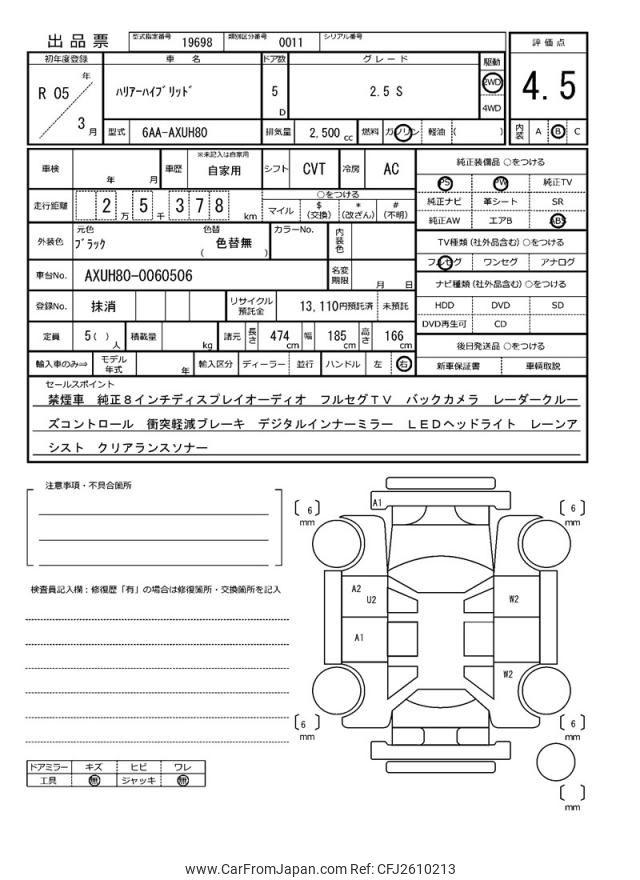 出品票 型式指定番号 19698 類別区分番号 0011 シリアル番号
評価点
4.5
内装 A B C
初年度登録 車名 ドア数 グレード 駆動
R 05 年 3 月 ハリアーハイブリッド 5 D 2.5 S 2WD 4WD
型式 6AA-AXUH80 排気量 2,500 cc 燃料 ガソリン 軽油 ( )
車検 年 月 車歴 ※未記入は自家用 自家用 シフト CVT 冷房 AC
走行距離 2 万 5 千 3 7 8 km
○をつける
マイル $ (交換) * (改ざん) # (不明)
外装色 元色 ブラック 色替 ( 色替無 ) カラーNo. 内装色
車台No. AXUH80-0060506 名変期限 月 日
登録No. 抹消 リサイクル預託金 13,110円預託済 未預託
定員 5( ) 人 積載量 kg 諸元 長さ 474 cm 幅 185 cm 高さ 166 cm
輸入車のみ⇒ モデル年式 年 輸入区分 ディーラー 並行 ハンドル 左 右
純正装備品 ○をつける
PS PW 純正TV
純正ナビ 革シート SR
純正AW エアB ABS
TV種類 (社外品含む) ○をつける
フルセグ ワンセグ アナログ
ナビ種類 (社外品含む) ○をつける
HDD DVD SD
DVD再生可 CD
後日発送品 ○をつける
新車保証書 車輌取説
セールスポイント
禁煙車 純正8インチディスプレイオーディオ フルセグTV バックカメラ レーダークルー
ズコントロール 衝突軽減ブレーキ デジタルインナーミラー LEDヘッドライト レーンア
シスト クリアランスソナー
注意事項・不具合箇所
検査員記入欄：修復歴「有」の場合は修復箇所・交換箇所を記入
ドアミラー キズ ヒビ ワレ
工具 無 ジャッキ 無
A1
[ 6 ] mm
[ 6 ] mm
A2
U2
W2
A1
W2
[ 6 ] mm
[ 6 ] mm
[ ] mm
www.CarFromJapan.com Ref: CFJ2610213